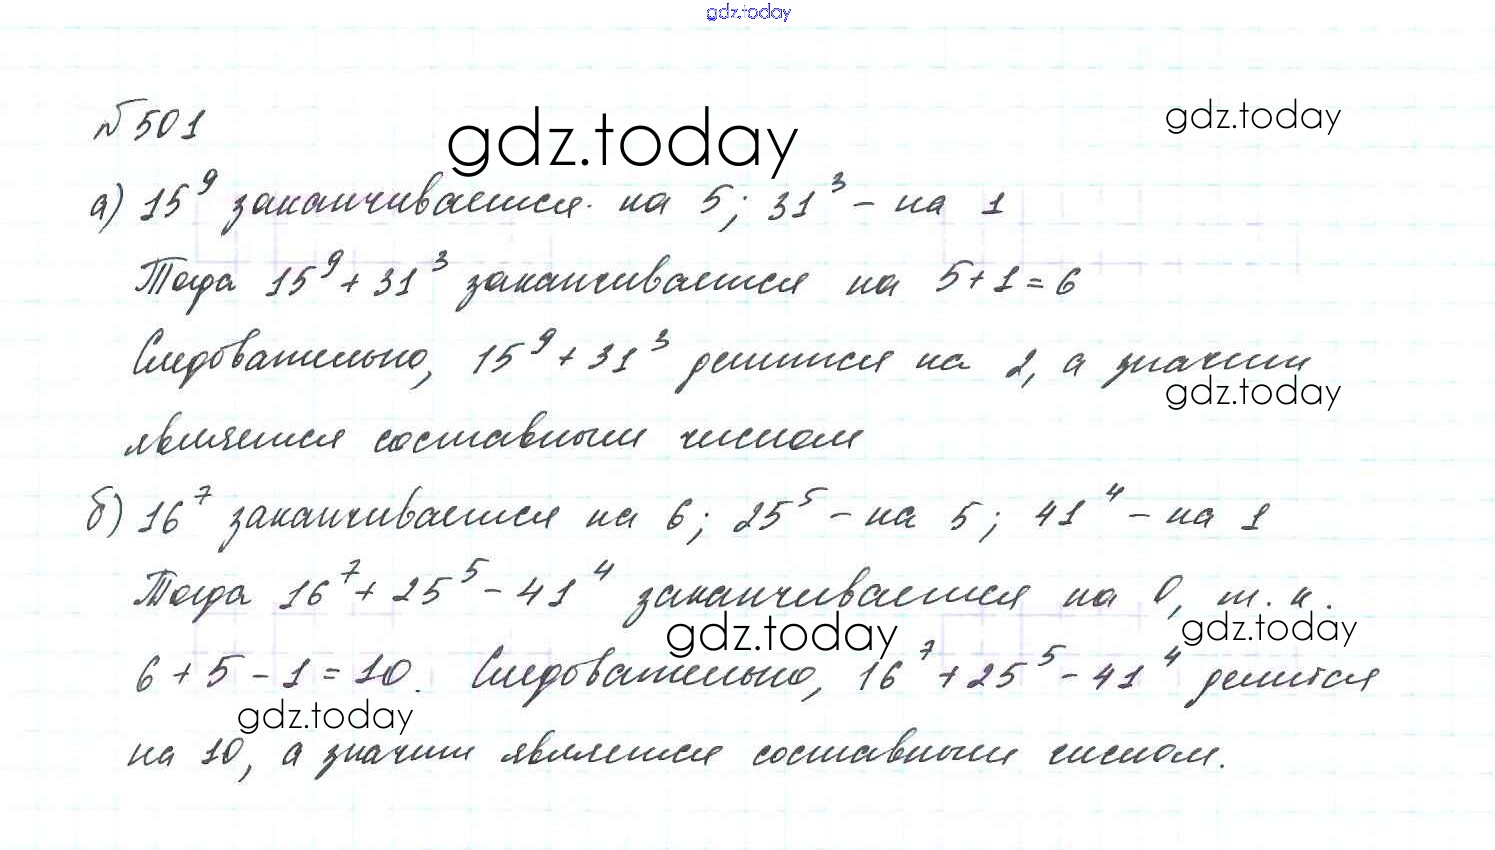 gdz.today
№ 501
gdz.today
gdz.today
а) 15⁹ заканчивается на 5; 31³ – на 1
Тогда 15⁹ + 31³ заканчивается на 5+1=6
Следовательно, 15⁹ + 31³ делится на 2, а значит
gdz.today
является составным числом
б) 16⁷ заканчивается на 6; 25⁵ – на 5; 41⁴ – на 1
Тогда 16⁷ + 25⁵ – 41⁴ заканчивается на 0, т. к.
gdz.today
gdz.today
6 + 5 – 1 = 10. Следовательно, 16⁷ + 25⁵ – 41⁴ делится
gdz.today
на 10, а значит является составным числом.